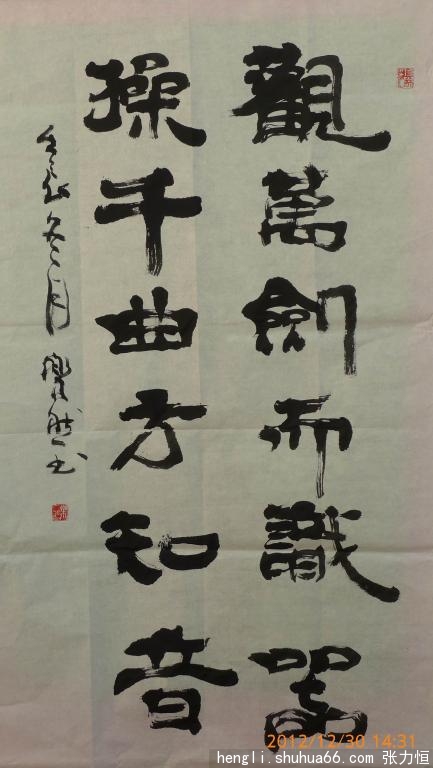 觀萬劍而識器
操千曲方知音
壬辰冬月 书
2012/12/30 14:31
hengli.shuhua66.com 张力恒